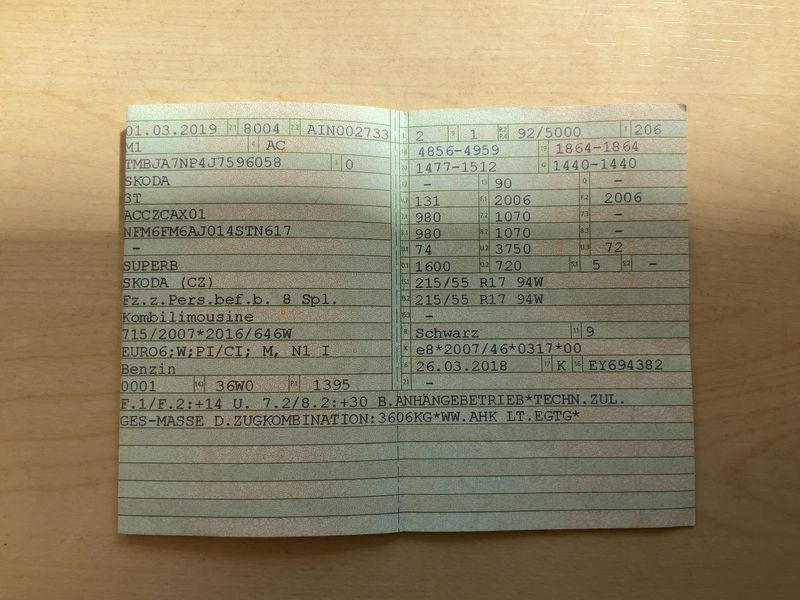 01.03.2019 2.1 8004 2.2 AIN002733
M1 4 AC
TMBJA7NP4J7596058 3 0
SKODA
3T
ACCZCAX01
NFM6FM6AJ014STN617
-
SUPERB
SKODA (CZ)
Fz.z.Pers.bef.b. 8 Spl.
Kombilimousine
715/2007*2016/646W
EURO6;W;PI/CI; M, N1 I
Benzin
0001 14.1 36W0 P.1 1395
L 2 9 1 P.2 P.4 92/5000 T 206
18 4856-4959 19 1864-1864
20 1477-1512 G 1440-1440
12 - 13 90 Q -
V.7 131 F.1 2006 F.2 2006
7.1 980 7.2 1070 7.3 -
8.1 980 8.2 1070 8.3 -
U.1 74 U.2 3750 U.3 72
O.1 1600 O.2 720 S.1 5 S.2 -
15.1 215/55 R17 94W
15.2 215/55 R17 94W
15.3 -
R Schwarz 11 9
K e8*2007/46*0317*00
6 26.03.2018 17 K 16 EY694382
21 -
F.1/F.2:+14 U. 7.2/8.2:+30 B.ANHÄNGEBETRIEB*TECHN.ZUL.
GES-MASSE D.ZUGKOMBINATION:3606KG*WW.AHK LT.EGTG*